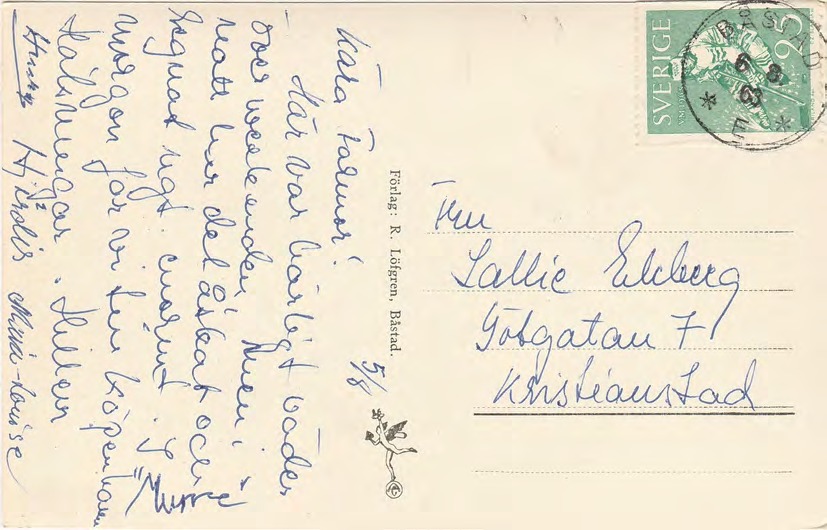 5/8
Kära Farmor!
Här var härligt väder
över weekenden. Men i
natt har det åskat och
regnat rejt enormt. I
morgon far vi till Köpenhamn
Hälsningar. Hillevi
Hj. Hjördis Marie-Louise
"Murre"
Förlag: R. Löfgren, Båstad.
Fru
Sallie Ekberg
Götgatan 7
Kristianstad
SVERIGE
25
BÅSTAD
6 8
63
* E *